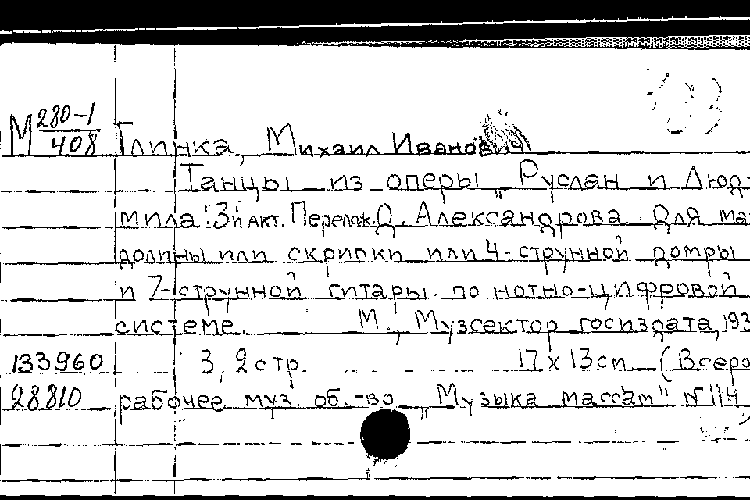 М 280-1
408 Глинка, Михаил Иванович
Танцы из оперы „Руслан и Люд-
мила". 3й акт. Перелож. О. Александрова для ман
долины или скрипки или 4-струнной домры
и 7-струнной гитары по нотно-цифровой
системе. М., Музсектор госиздата, 193
133960 3, 2 стр. 17 х 13 сп. (Всеро
28810 рабочее муз. об.-во „Музыка массам" №114